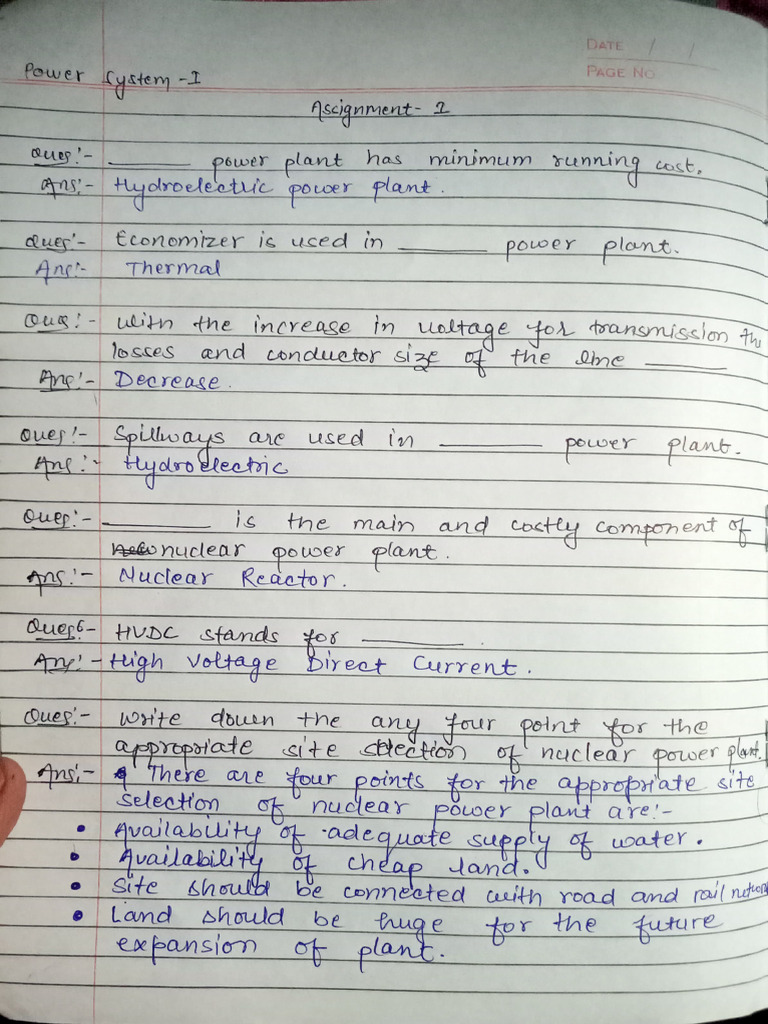 DATE / /
PAGE NO
Power System - I
Ascignment - 1
Ques:- ______ power plant has minimum running cost.
Ans:- Hydroelectric power plant.
Ques:- Economizer is used in ______ power plant.
Ans:- Thermal
Ques:- with the increase in voltage for transmission the
losses and conductor size of the line ______
Ans:- Decrease.
Ques:- Spillways are used in ______ power plant.
Ans:- Hydroelectric
Ques:- ______ is the main and costly component of
nuclear power plant.
Ans:- Nuclear Reactor.
Ques:- HVDC stands for ______.
Ans:- High Voltage Direct Current.
Ques:- write down the any four point for the
appropriate site selection of nuclear power plant.
Ans:- There are four points for the appropriate site
selection of nuclear power plant are:-
• Availability of adequate supply of water.
• Availability of cheap land.
• Site should be connected with road and rail network
• Land should be huge for the future
expansion of plant.